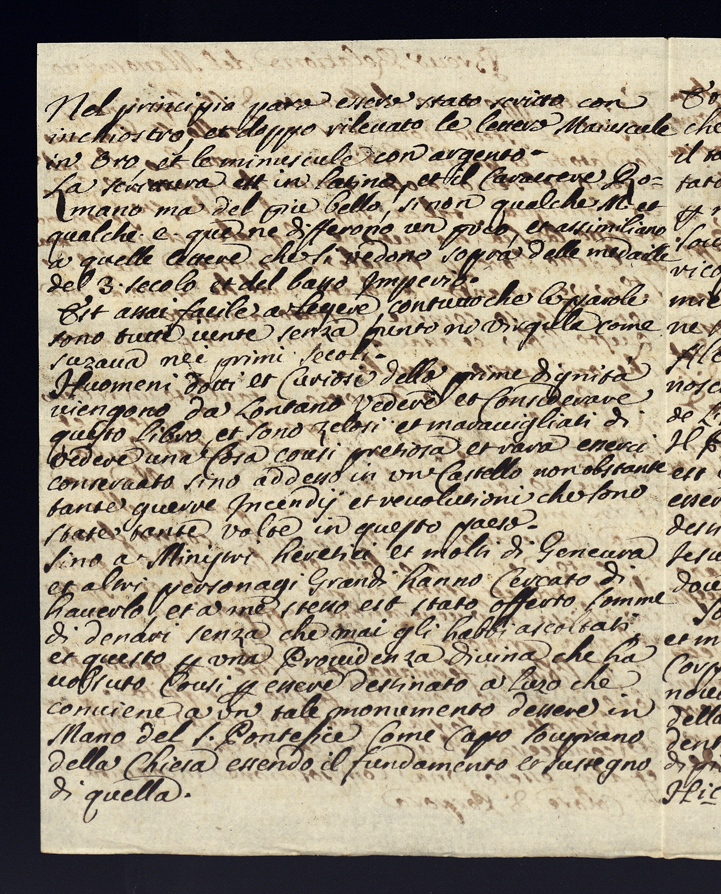 Nel principio pare essere stato scritto con
inchiostro, et doppo rilevato le lettere Maiuscule
in Oro, et le minuscule con argento.
La scrittura est in latino, et il Carattere Ro-
mano ma del piu bello, si non qualche M. et
qualche e. que ne differono un poco, et assimiliano
a quelle lettere che si vedono sopra delle medaille
del 3. secolo et del basso Imperio.
Est assai facile a legere, contutto che le parole
sono tutte unite senza punto no virgula come
suzava nei primi secoli.
Huomeni dotti et Curiosi della prime dignità
viengono da Lontano Vedere et Considerare
questo Libro, et sono zelosi et maravigliati di
vedere una Cosa cousi pretiosa et rara esserci
conservato sino addesso in un Castello non obstante
tante guerre Incendij et revolutioni che sono
state tante volte in questo paese.
Sino a Ministri heretici et molti di Genevra
et altri personagi Grandi hanno Cercato di
haverlo, et a me stesso est stato offerto somme
di denari senza che mai gli habbi ascoltati
et questo p una Providenza divina che ha
volsuto Cousi p essere destinato a luzo che
conviene a un tale monumento dessere in
Mano del S. Pontefice Come Capo souprano
della Chiesa essendo il fundamento et sustegno
di quella.